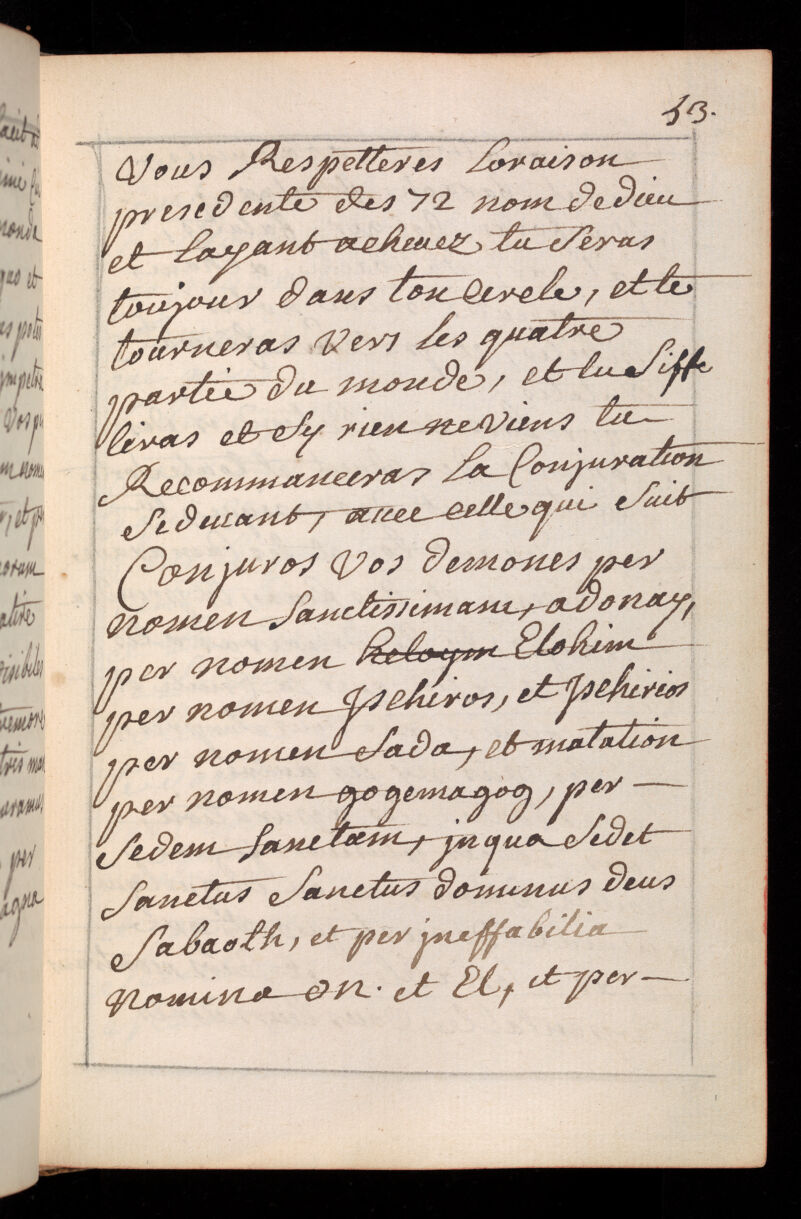 53.
Vous Respetteres Loraison
presedente des 72 nom de dieu
et Layant acheuez tu Seras
toujour dans ton Cercle, et te
tourneras Vers les quatre
partie du monde, et tu Siffe
leras et Sy rien ne Viens tu
Recommanceras La Conjuration
Sedeuant, auec celle qui Suit
Conjuros Vos demones per
nomen Sanctissimam, adonay,
per nomen heloym Elohim
per nomen Jschiros, et Jschirios
per nomen Sada, et matation
per nomen gogemagog, per —
Sedem Sanctam, jn qua Sedet
Sanctus Sanctus dominus deus
Sabaoth, et per jneffabilia
Nomina on. et El, et per —